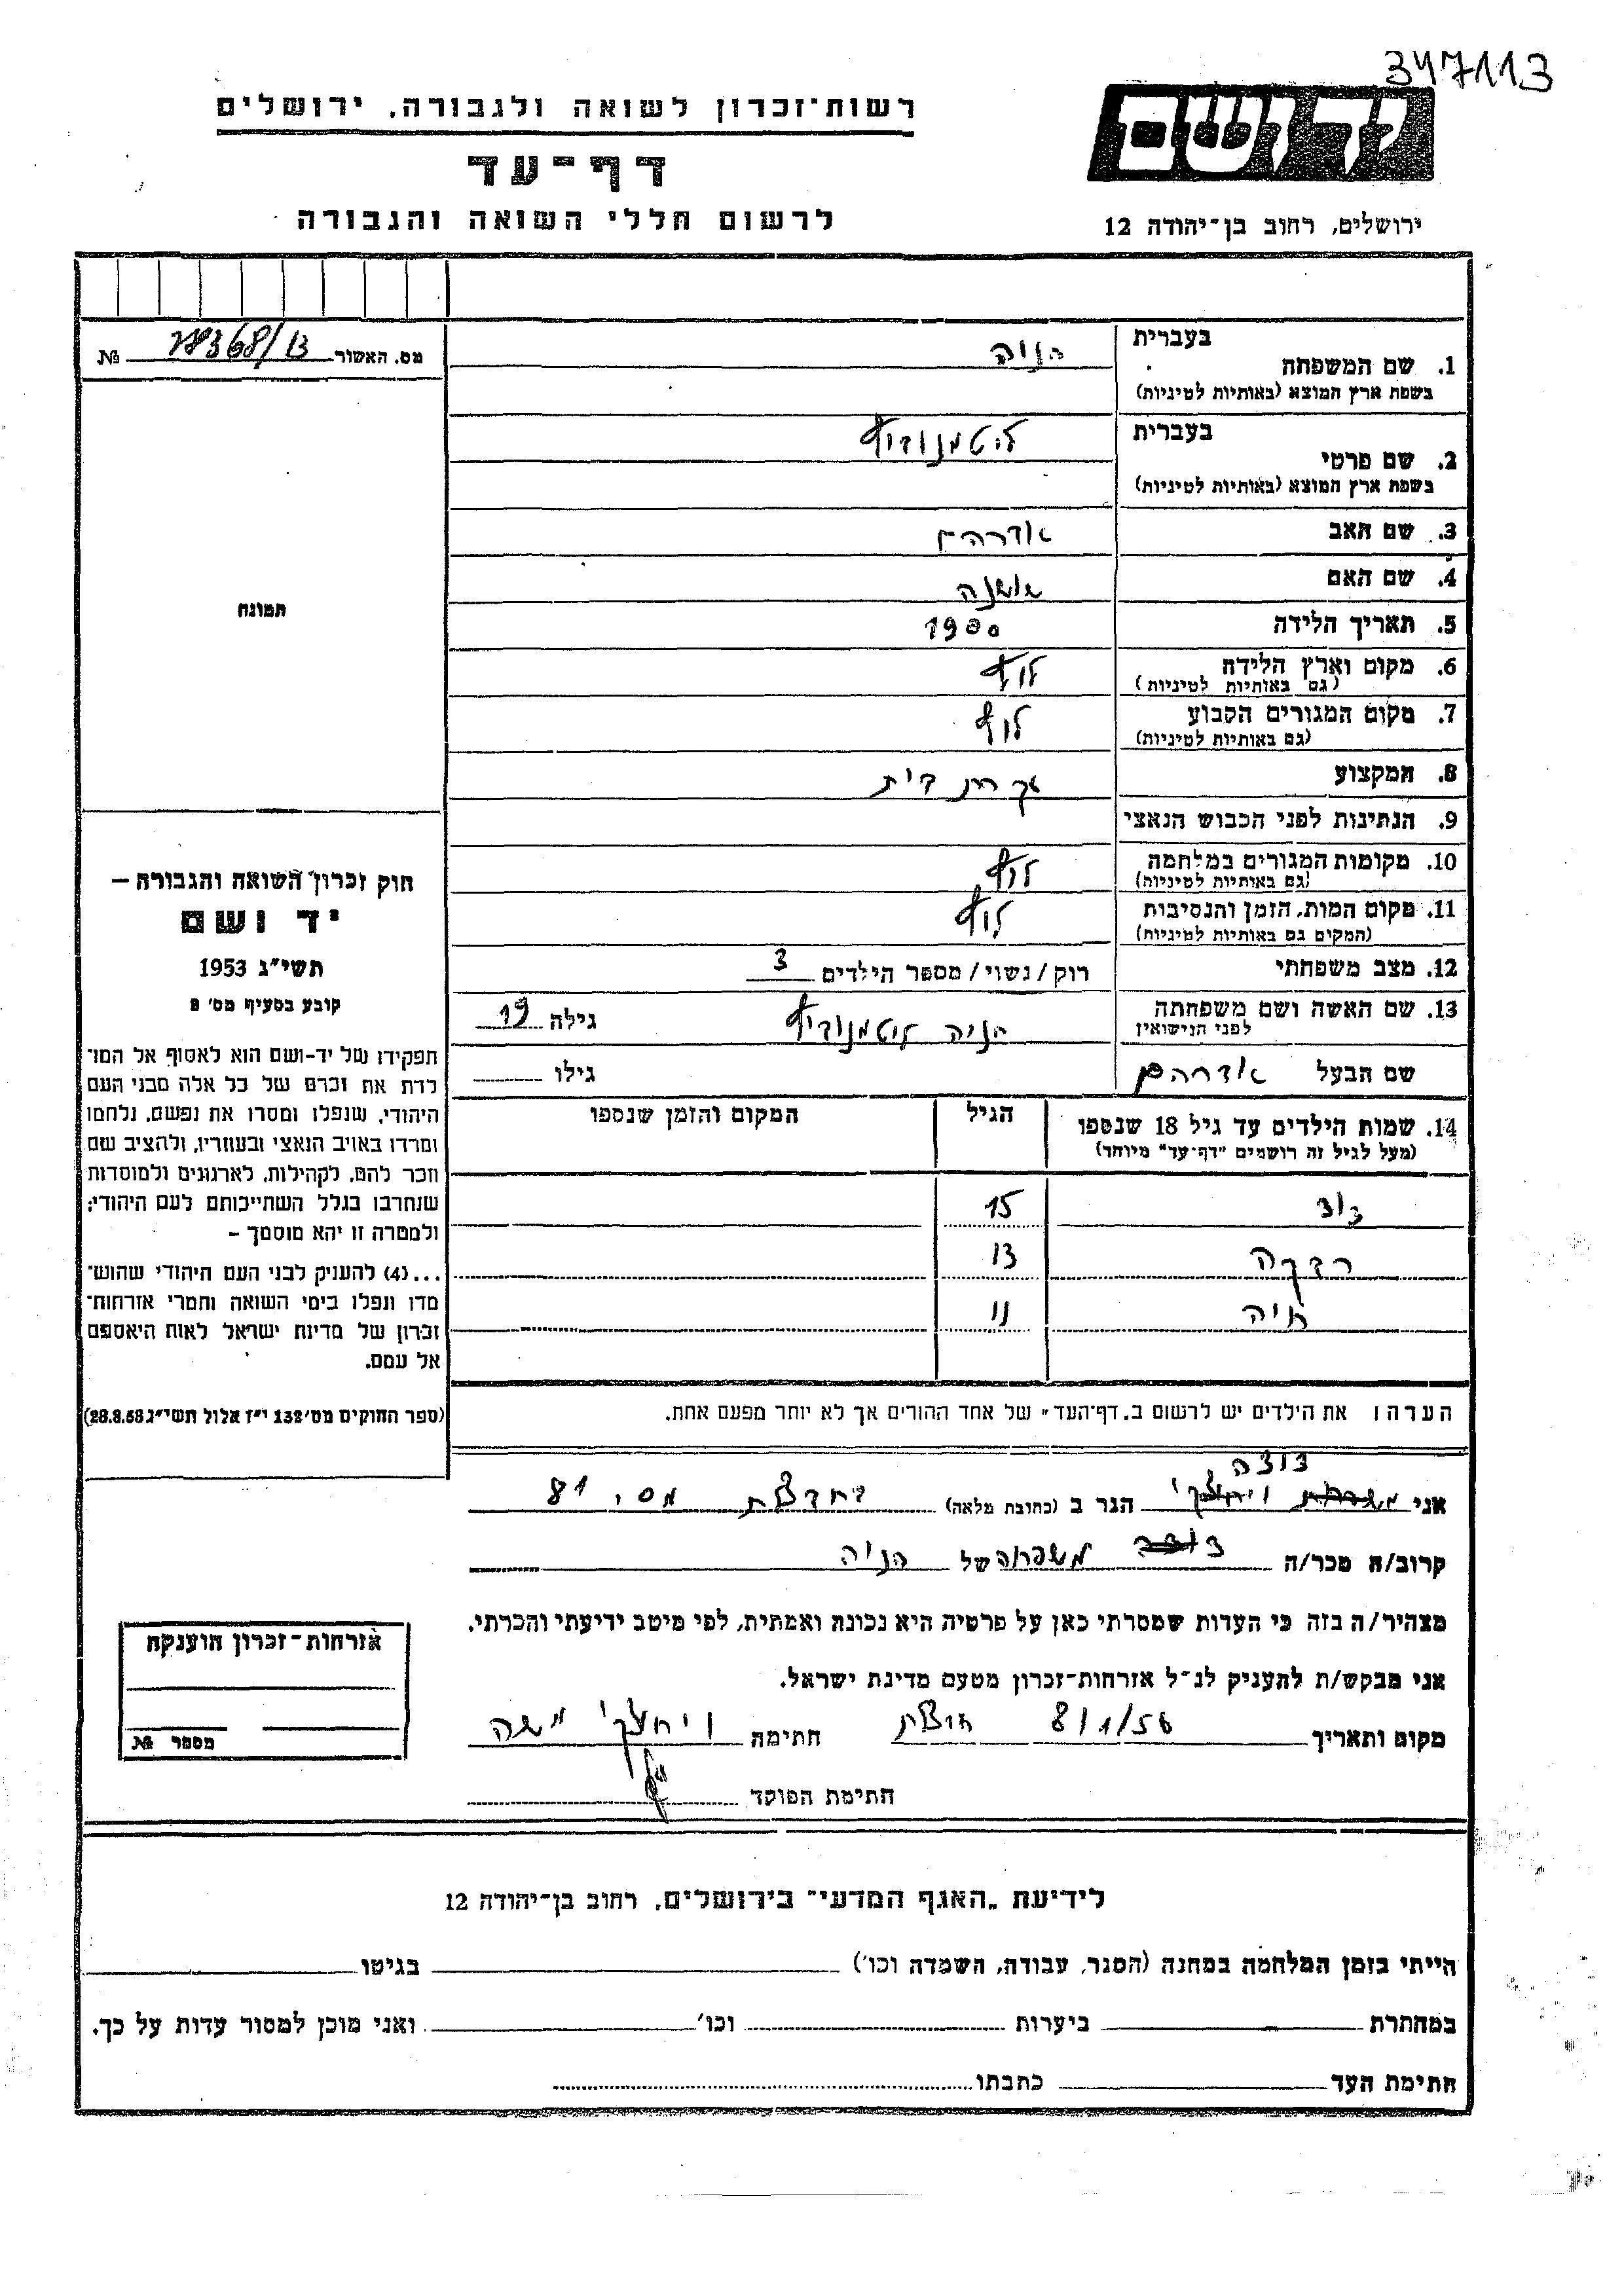 347113
רשות־זכרון לשואה ולגבורה, ירושלים
דף־עד
לרשום חללי השואה והגבורה
ידושם
ירושלים, רחוב בן־יהודה 12
מס. האשור № 28368/13
בעברית
1. שם המשפחה
בשפת ארץ המוצא (באותיות לטיניות)
הניה
בעברית
2. שם פרטי
בשפת ארץ המוצא (באותיות לטיניות)
3. שם האב
4. שם האם
5. תאריך הלידה 1900
6. מקום וארץ הלידה
(גם באותיות לטיניות)
7. מקום המגורים הקבוע
(גם באותיות לטיניות)
8. המקצוע עקרת בית
9. הנתינות לפני הכבוש הנאצי
10. מקומות המגורים במלחמה
(גם באותיות לטיניות)
11. מקום המות, הזמן והנסיבות
(המקום גם באותיות לטיניות)
12. מצב משפחתי רוק/נשוי/מספר הילדים 3
13. שם האשה ושם משפחתה
לפני הנישואין
הניה
גילה 19
שם הבעל אברהם גילו
14. שמות הילדים עד גיל 18 שנספו
(מעל לגיל זה רושמים "דף־עד" מיוחד)
הגיל
המקום והזמן שנספו
דוד 15
רבקה 13
חיה 11
הערה: את הילדים יש לרשום ב„דף־העד" של אחד ההורים אך לא יותר מפעם אחת.
תמונה
חוק זכרון השואה והגבורה –
יד ושם
תשי"ג 1953
קובע בסעיף מס׳ 2
תפקידו של יד-ושם הוא לאסוף אל המו־
לדת את זכרם של כל אלה מבני העם
היהודי, שנפלו ומסרו את נפשם, נלחמו
ומרדו באויב הנאצי ובעוזריו, ולהציב שם
וזכר להם, לקהילות, לארגונים ולמוסדות
שנחרבו בגלל השתייכותם לעם היהודי;
ולמטרה זו יהא מוסמך –
...(4) להעניק לבני העם היהודי שהוש־
מדו ונפלו בימי השואה והמרי אזרחות־
זכרון של מדינת ישראל לאות היאספם
אל עמם.
(ספר החוקים מס׳ 132 י"ז אלול תשי"ג 28.8.53)
דודה
אני הגר ב (כתובת מלאה) מס. 81
קרוב/ה מכר/ה משפחה של הניה
מצהיר/ה בזה כי העדות שמסרתי כאן על פרטיה היא נכונה ואמתית, לפי מיטב ידיעתי והכרתי.
אני מבקש/ת להעניק לנ"ל אזרחות־זכרון מטעם מדינת ישראל.
מקום ותאריך 8/1/56 חתימה
חתימת הפוקד
אזרחות־זכרון הוענקה
מספר №
לידיעת „האגף המדעי" בירושלים, רחוב בן־יהודה 12
הייתי בזמן המלחמה במחנה (הסגר, עבודה, השמדה וכו׳) בגיטו
במחתרת ביערות וכו׳ ואני מוכן למסור עדות על כך.
חתימת העד כתבתו